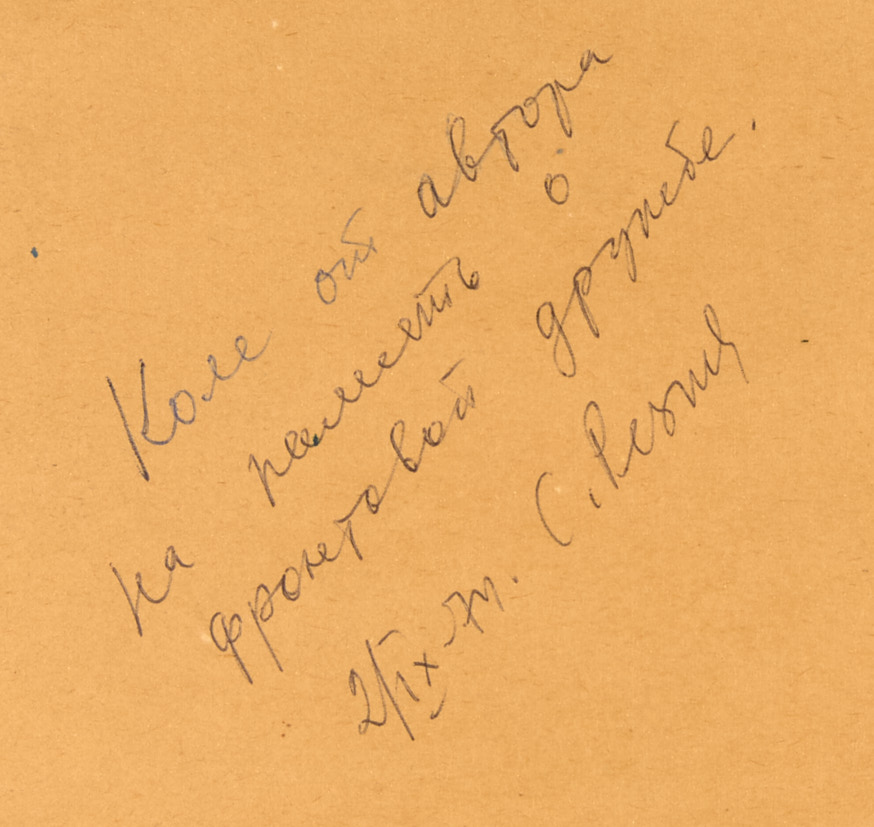 Коле от автора
на память о
фронтовой дружбе.
2/IX